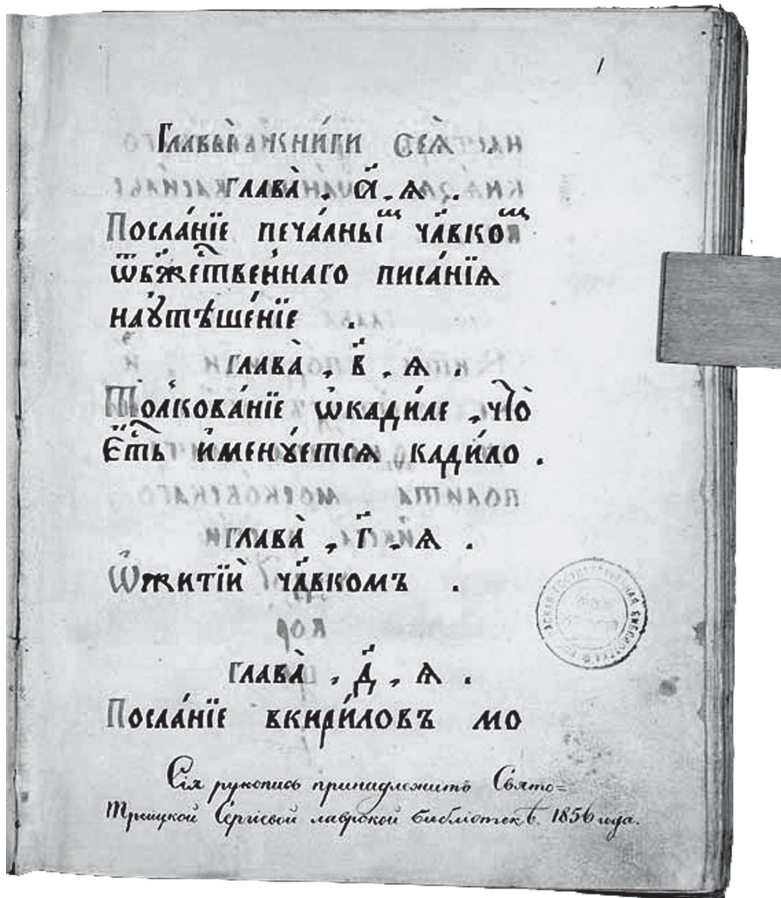 1
Главы̀ кни́ги сеѧ̀
глава̀ . а҃ . ѧ .
Посла́нїе печа́лны чл҃вкѡ
ѿбж҃е́твеннаго писа́нїѧ
наꙋтѣше́нїе .
глава̀ . в҃ . ѧ .
Толкова́нїе ѡкади́ле , что̀
е҆́ть и҆менꙋ́етсѧ кади́ло .
глава̀ . г҃ . ѧ .
Ѡ҆житїѝ чл҃вкомъ .
глава̀ . д҃ . ѧ .
Посла́нїе вкири́ловъ мо
Сія рукопись принадлежитъ Свято=
Троицкой Сергіевой лаврской библіотекѣ. 1856 года.